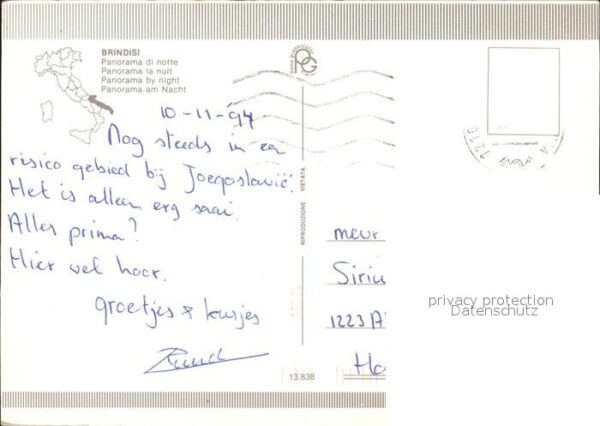 BRINDISI
Panorama di notte
Panorama la nuit
Panorama by night
Panorama am Nacht
10-11-'94
Nog steeds in een
risico gebied bij Joegoslavië.
Het is alleen erg saai.
Alles prima?
Hier wel hoor.
groetjes & kusjes
Ruud
RIPRODUZIONE VIETATA
13.838
mevr
Siriu
1223 A
Ho
privacy protection
Datenschutz